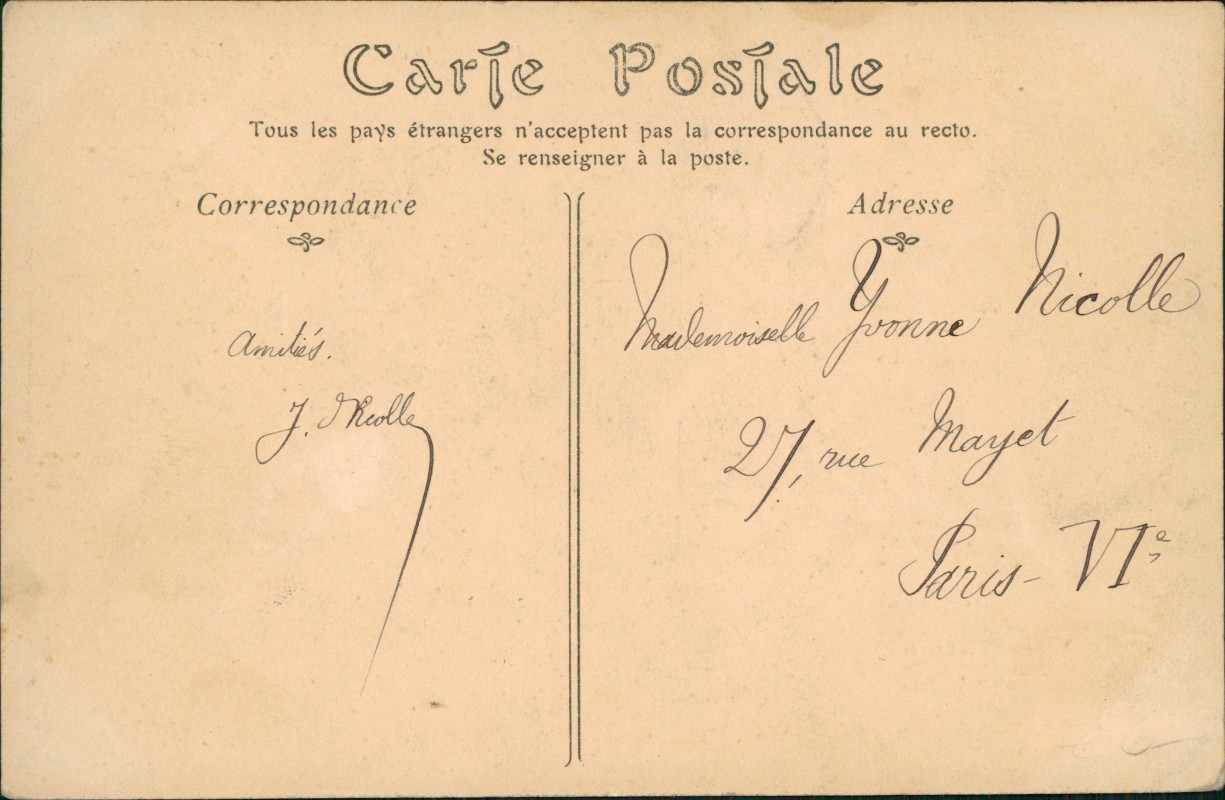 Carte Postale
Tous les pays étrangers n'acceptent pas la correspondance au recto.
Se renseigner à la poste.
Correspondance
Adresse
Amitiés.
J. Nicolle
Mademoiselle Yvonne Nicolle
27, rue Mayet
Paris - VIe